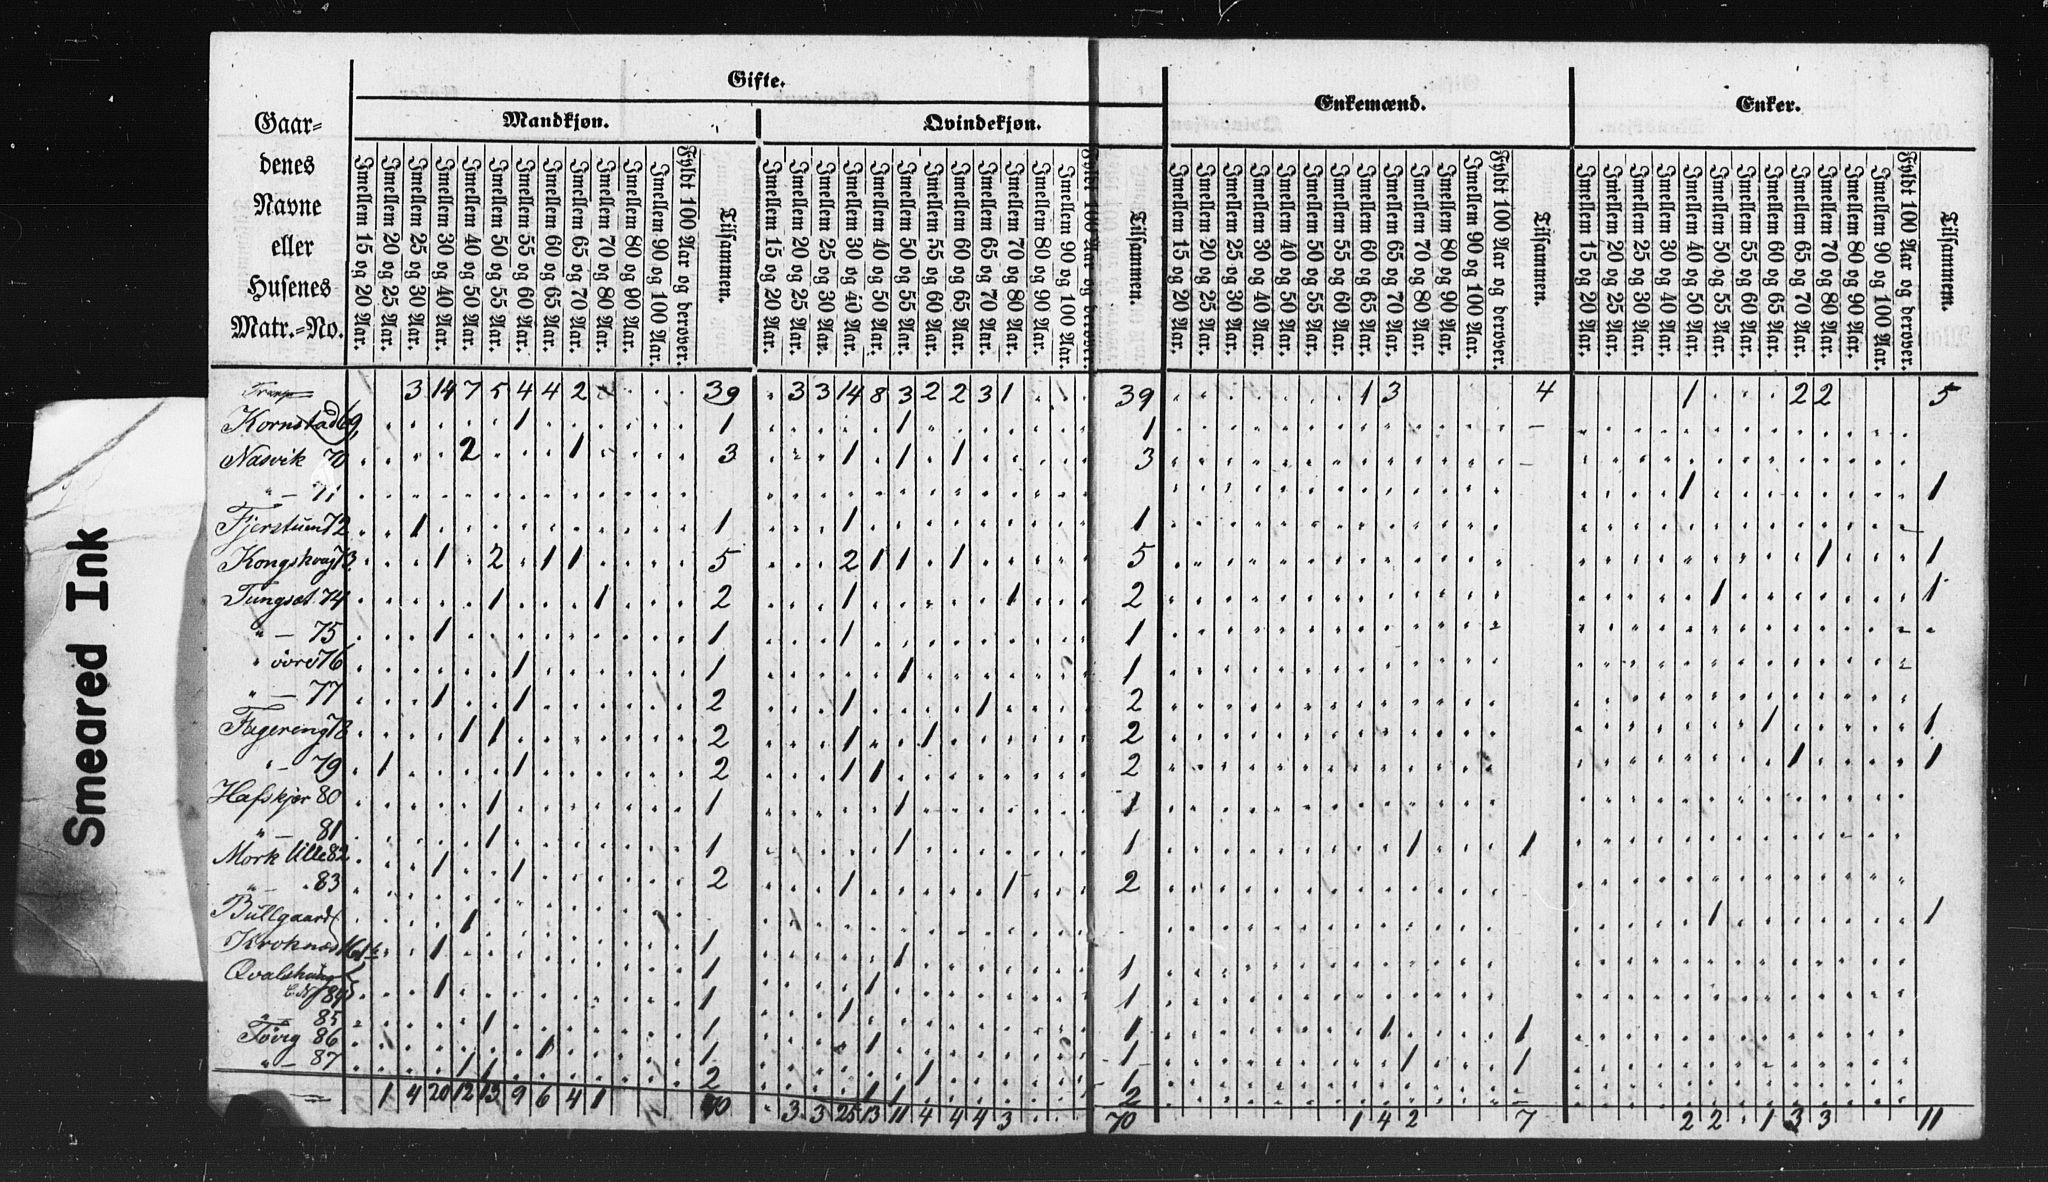 Smeared Ink
Gifte.
Enkemænd.
Enker.
Mandkjøn.
Qvindekjøn.
Gaar-
denes
Navne
eller
Husenes
Matr.-No.
Imellem 15 og 20 Aar.
Imellem 20 og 25 Aar.
Imellem 25 og 30 Aar.
Imellem 30 og 40 Aar.
Imellem 40 og 50 Aar.
Imellem 50 og 55 Aar.
Imellem 55 og 60 Aar.
Imellem 60 og 65 Aar.
Imellem 65 og 70 Aar.
Imellem 70 og 80 Aar.
Imellem 80 og 90 Aar.
Imellem 90 og 100 Aar.
Fyldt 100 Aar og derover.
Tilsammen.
Imellem 15 og 20 Aar.
Imellem 20 og 25 Aar.
Imellem 25 og 30 Aar.
Imellem 30 og 40 Aar.
Imellem 40 og 50 Aar.
Imellem 50 og 55 Aar.
Imellem 55 og 60 Aar.
Imellem 60 og 65 Aar.
Imellem 65 og 70 Aar.
Imellem 70 og 80 Aar.
Imellem 80 og 90 Aar.
Imellem 90 og 100 Aar.
Fyldt 100 Aar og derover.
Tilsammen.
Imellem 15 og 20 Aar.
Imellem 20 og 25 Aar.
Imellem 25 og 30 Aar.
Imellem 30 og 40 Aar.
Imellem 40 og 50 Aar.
Imellem 50 og 55 Aar.
Imellem 55 og 60 Aar.
Imellem 60 og 65 Aar.
Imellem 65 og 70 Aar.
Imellem 70 og 80 Aar.
Imellem 80 og 90 Aar.
Imellem 90 og 100 Aar.
Fyldt 100 Aar og derover.
Tilsammen.
Imellem 15 og 20 Aar.
Imellem 20 og 25 Aar.
Imellem 25 og 30 Aar.
Imellem 30 og 40 Aar.
Imellem 40 og 50 Aar.
Imellem 50 og 55 Aar.
Imellem 55 og 60 Aar.
Imellem 60 og 65 Aar.
Imellem 65 og 70 Aar.
Imellem 70 og 80 Aar.
Imellem 80 og 90 Aar.
Imellem 90 og 100 Aar.
Fyldt 100 Aar og derover.
Tilsammem.
Transp 3 14 7 5 4 4 2 39 3 3 14 8 3 2 2 3 1 39 1 3 4 1 2 2 5
Kornstad 69, 1 1 1 1
Nasvik 70 2 1 3 1 1 1 3
" — 71 1 1
Fjerstum 72 1 1 1 1
Kongshoug 73. 1 2 1 1 5 2 1 1 1 5 1 1
Tungsæt 74 1 1 2 1 1 2 1 1
" — 75 1 1 1 1
" övre 76 1 1 1 1
" — 77 1 1 2 1 1 2
Fagereng 78 1 1 2 1 1 2 1 1
" — 79 1 1 2 1 1 2 1 1
Hafskjær 80 1 1 1 1
" — 81 1 1 1 1 1 1
Mork Ulle 82 1 1 2 1 1 2
" — 83
Bullgaard 1 1 1 1
Kroknæs 1 1 1
Qvalshaug 1 1 1 1
84
" — 85 1 1 1 1 1 1
Tövig 86 1 1 1 1 1 1
" — 87 1 1 2 1 1 2
1 4 20 12 13 9 6 4 1 70 3 3 25 13 11 4 4 4 3 70 1 4 2 7 2 2 1 3 3 11